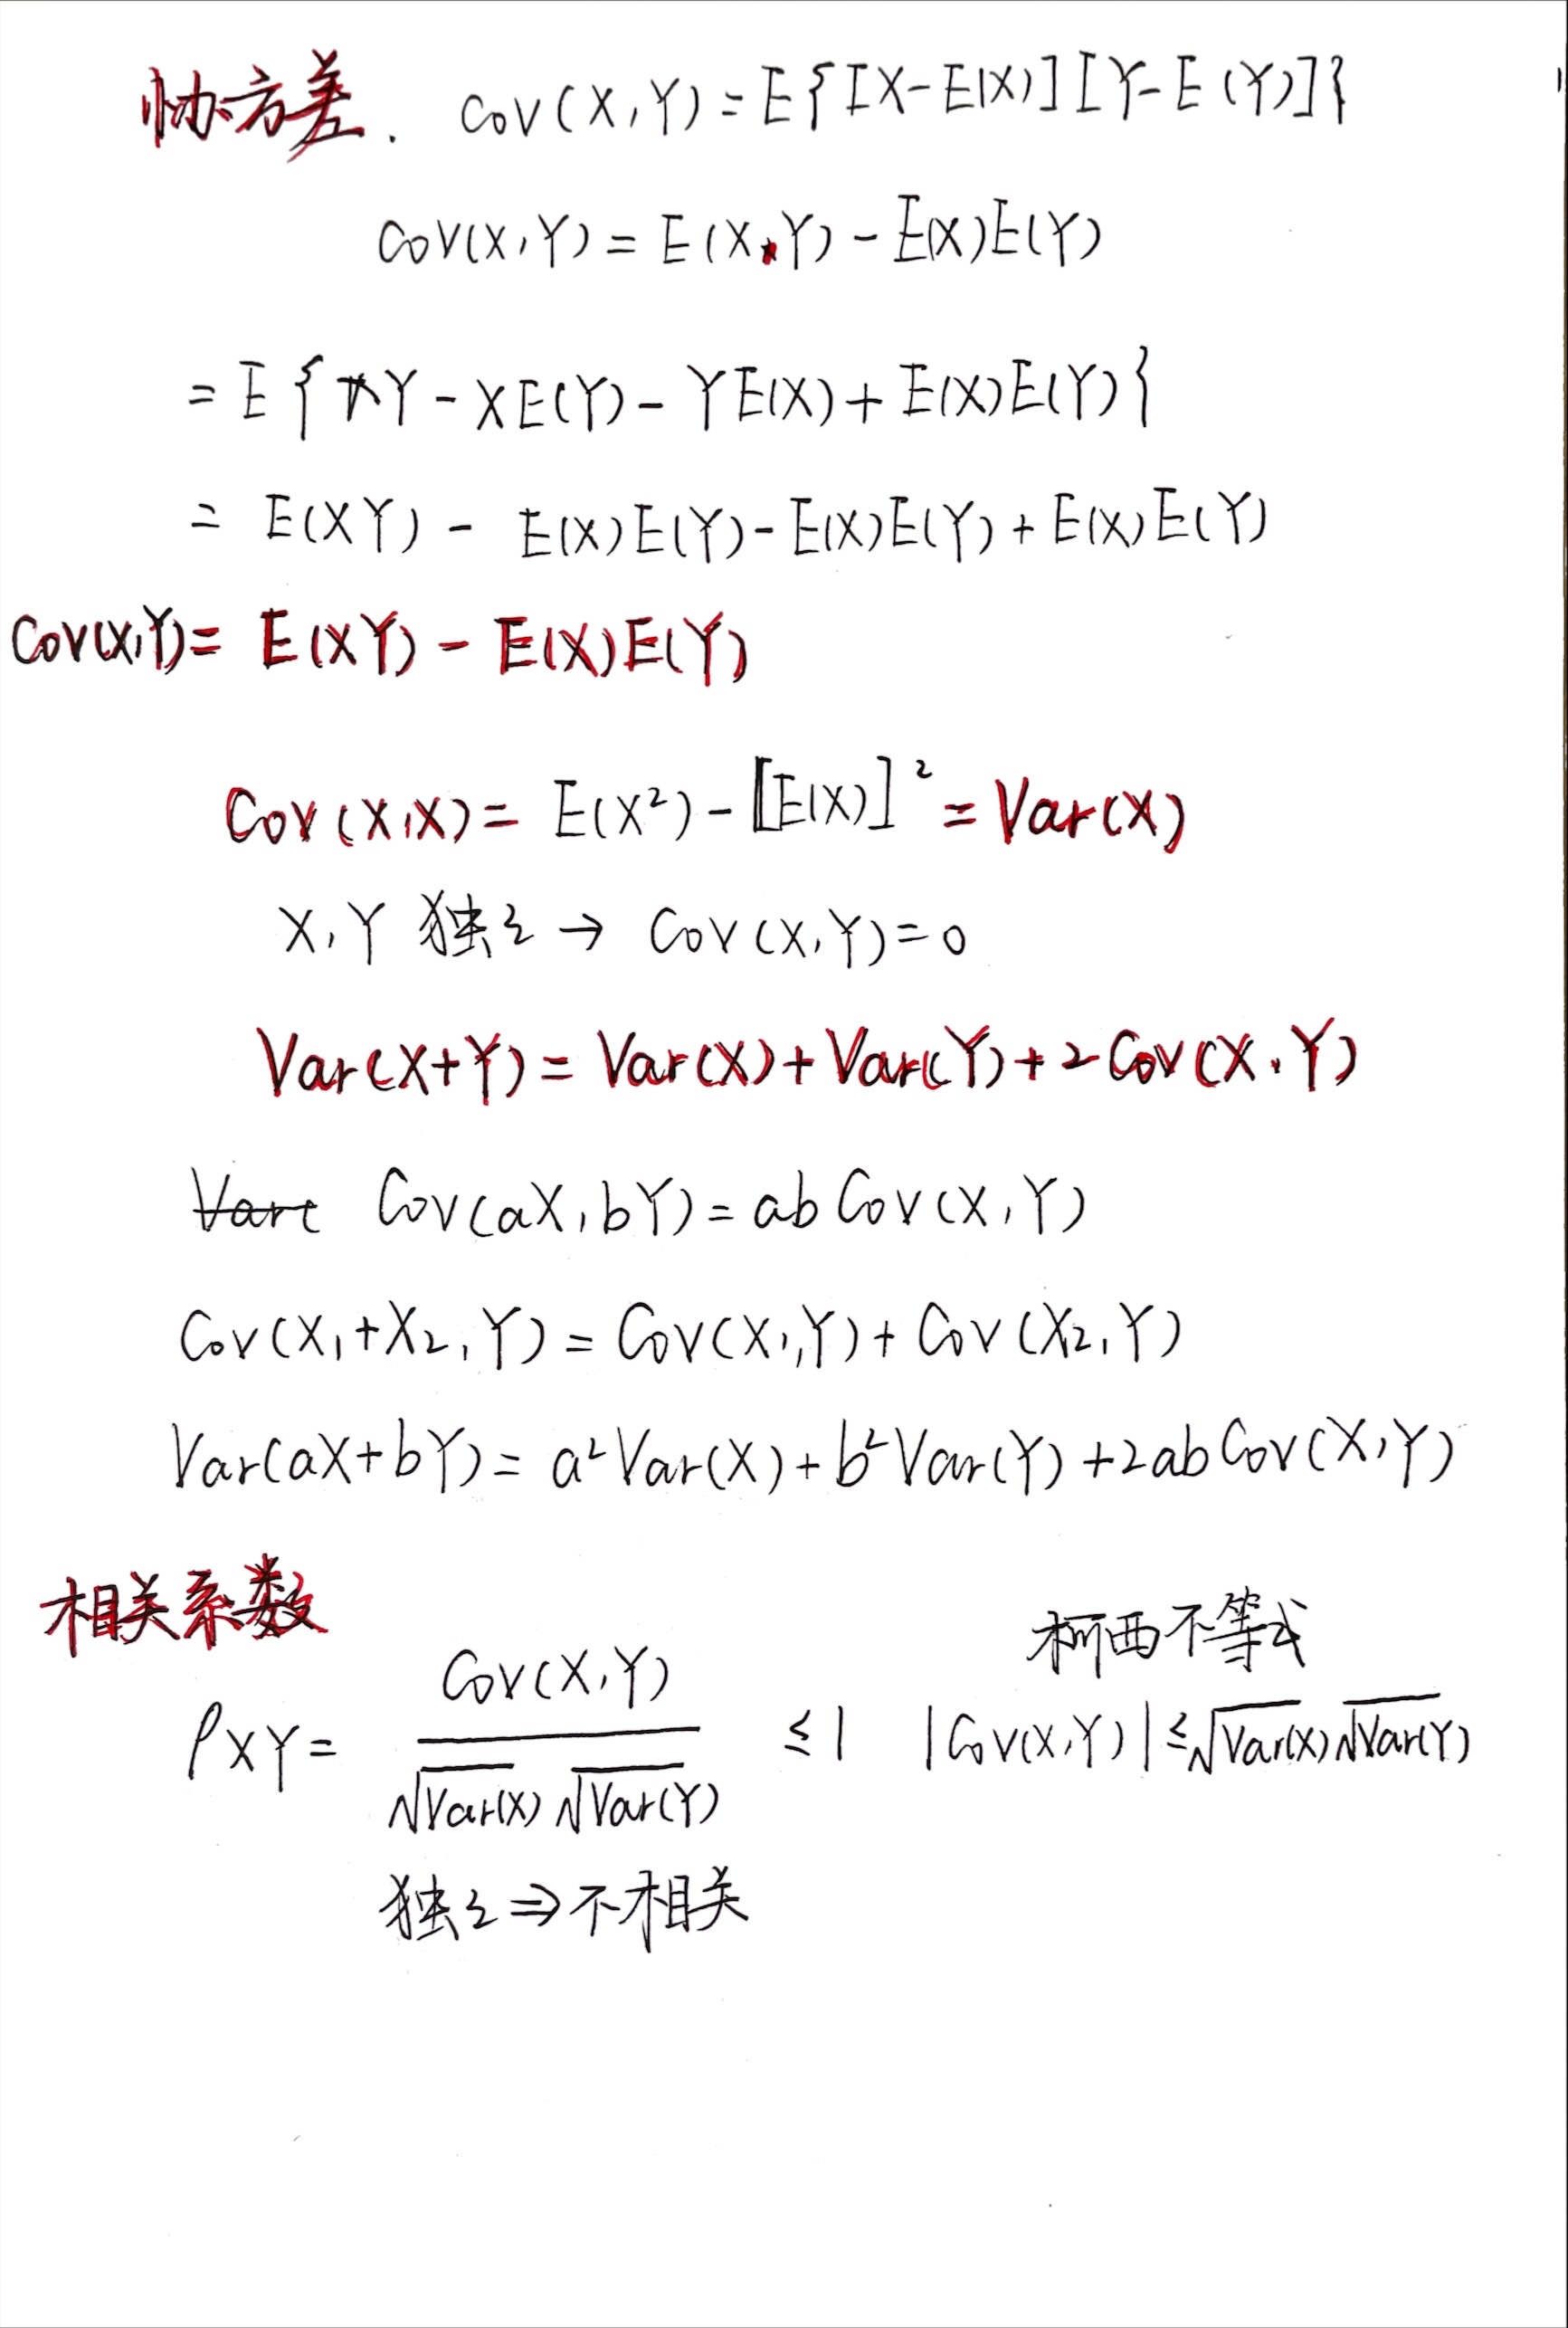 协方差. Cov(X,Y)=E{[X-E(X)][Y-E(Y)]}
Cov(X,Y)=E(X·Y)-E(X)E(Y)
=E{XY-XE(Y)-YE(X)+E(X)E(Y)}
= E(XY)- E(X)E(Y)-E(X)E(Y)+E(X)E(Y)
Cov(X,Y)= E(XY)-E(X)E(Y)
Cov(X,X)= E(X²)-[E(X)]²=Var(X)
X,Y 独立→ Cov(X,Y)=0
Var(X+Y)=Var(X)+Var(Y)+2Cov(X,Y)
Var( Cov(aX,bY)=abCov(X,Y)
Cov(X₁+X₂,Y)=Cov(X₁,Y)+Cov(X₂,Y)
Var(aX+bY)=a²Var(X)+b²Var(Y)+2abCov(X,Y)
相关系数
柯西不等式
ρXY= Cov(X,Y) / √Var(X) √Var(Y) ≤1 |Cov(X,Y)|≤√Var(X)√Var(Y)
独立⇒不相关